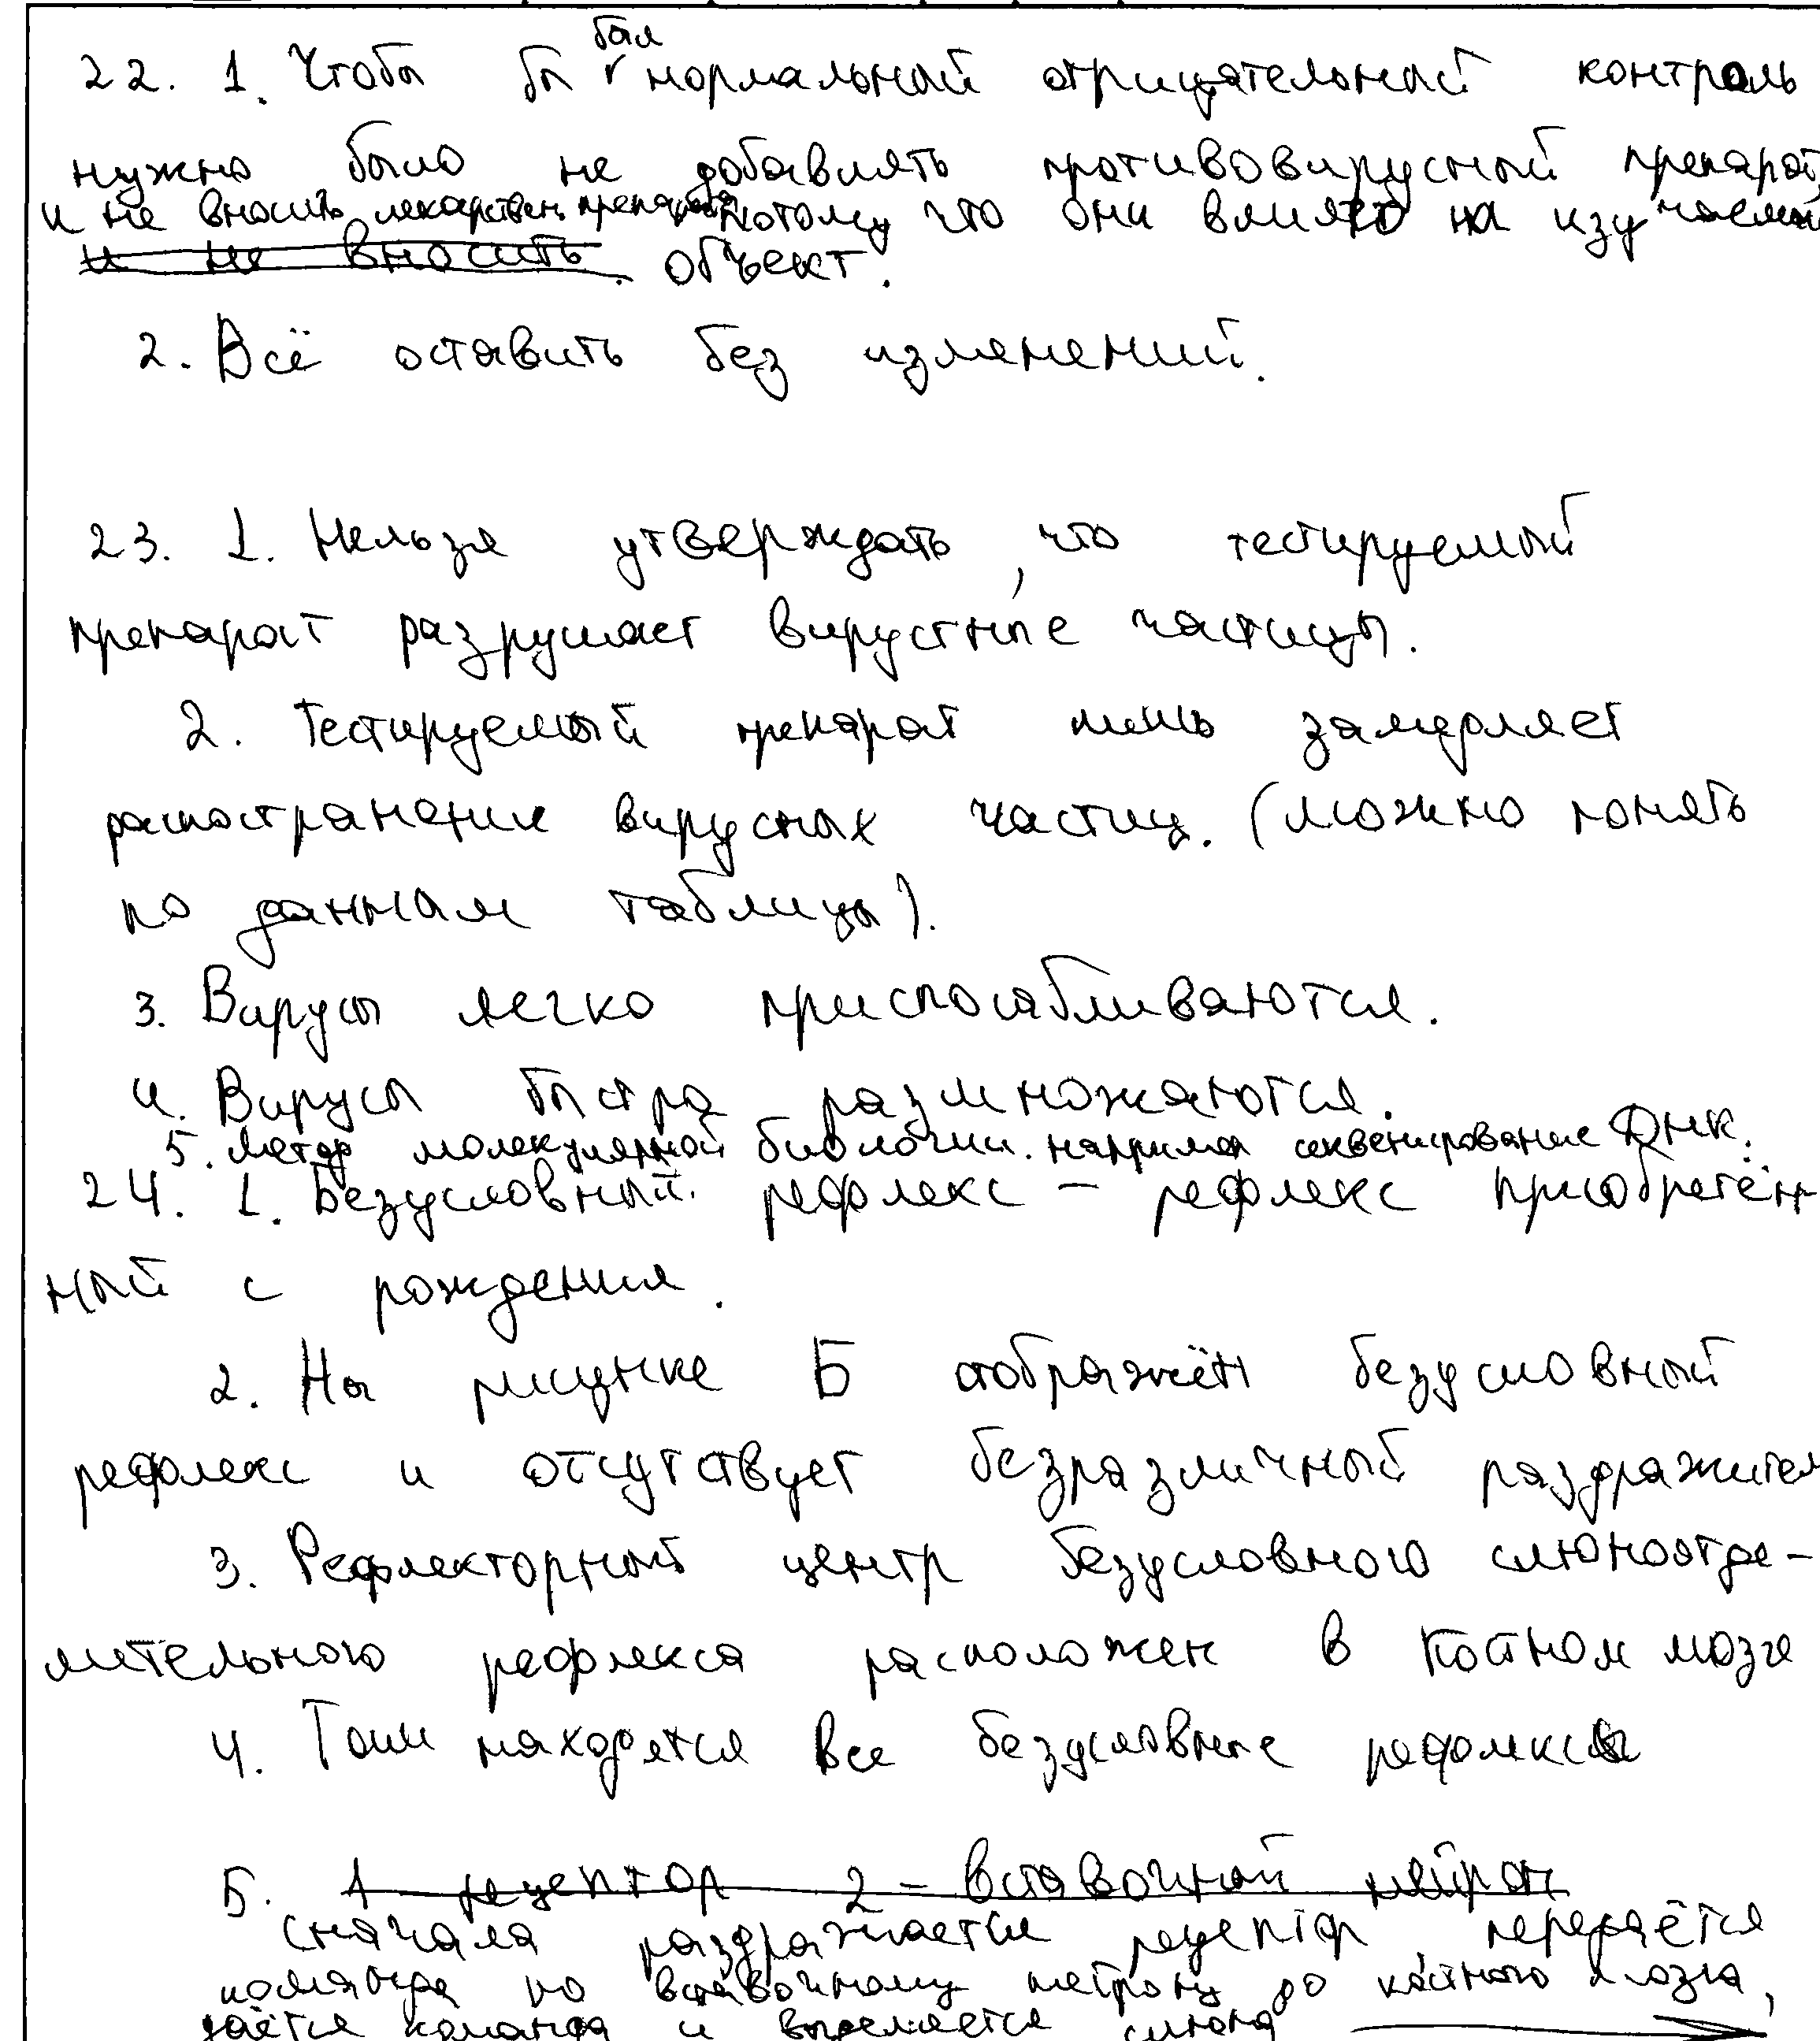 был
22. 1. Чтобы бы √ нормальный отрицательный контроль
нужно было не добавлять противовирусный препарат,
и не вносить лекарствен. препарата потому что они влияют на изучаемый
и не вносить. объект.
2. Всё оставить без изменений.
23. 1. Нельзя утверждать, что тестируемый
препарат разрушает вирустные частицы.
2. Тестируемый препарат лишь замедляет
распостранение вирусных частиц. (можно понять
по данным таблицы).
3. Вирусы легко приспосабливаются.
4. Вирусы быстро размножаются.
5. Метод молекулярной биологии. например секвенирование ДНК.
24. 1. Безусловный рефлекс – рефлекс приобретён-
ный с рождения.
2. На рисунке Б отображён безусловный
рефлекс и отсутствует безразличный раздражител
3. Рефлекторный центр безусловного слюноотде-
лительного рефлекса расположен в костном мозге
4. Там находятся все безусловные рефлексы
5. 1 – рецептор 2 – вставочный нейрон
сначала раздражается рецептор, передаётся
команда по вставочному нейрону до костного мозга,
даётся команда и выделяется слюна